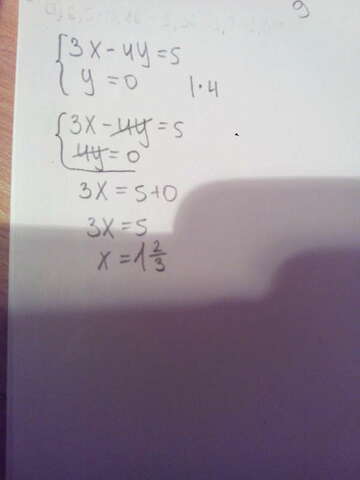 9
{ 3x - 4y = 5
{ y = 0 | · 4
{ 3x - 4y = 5
{ 4y = 0
3x = 5+0
3x = 5
x = 1 2/3